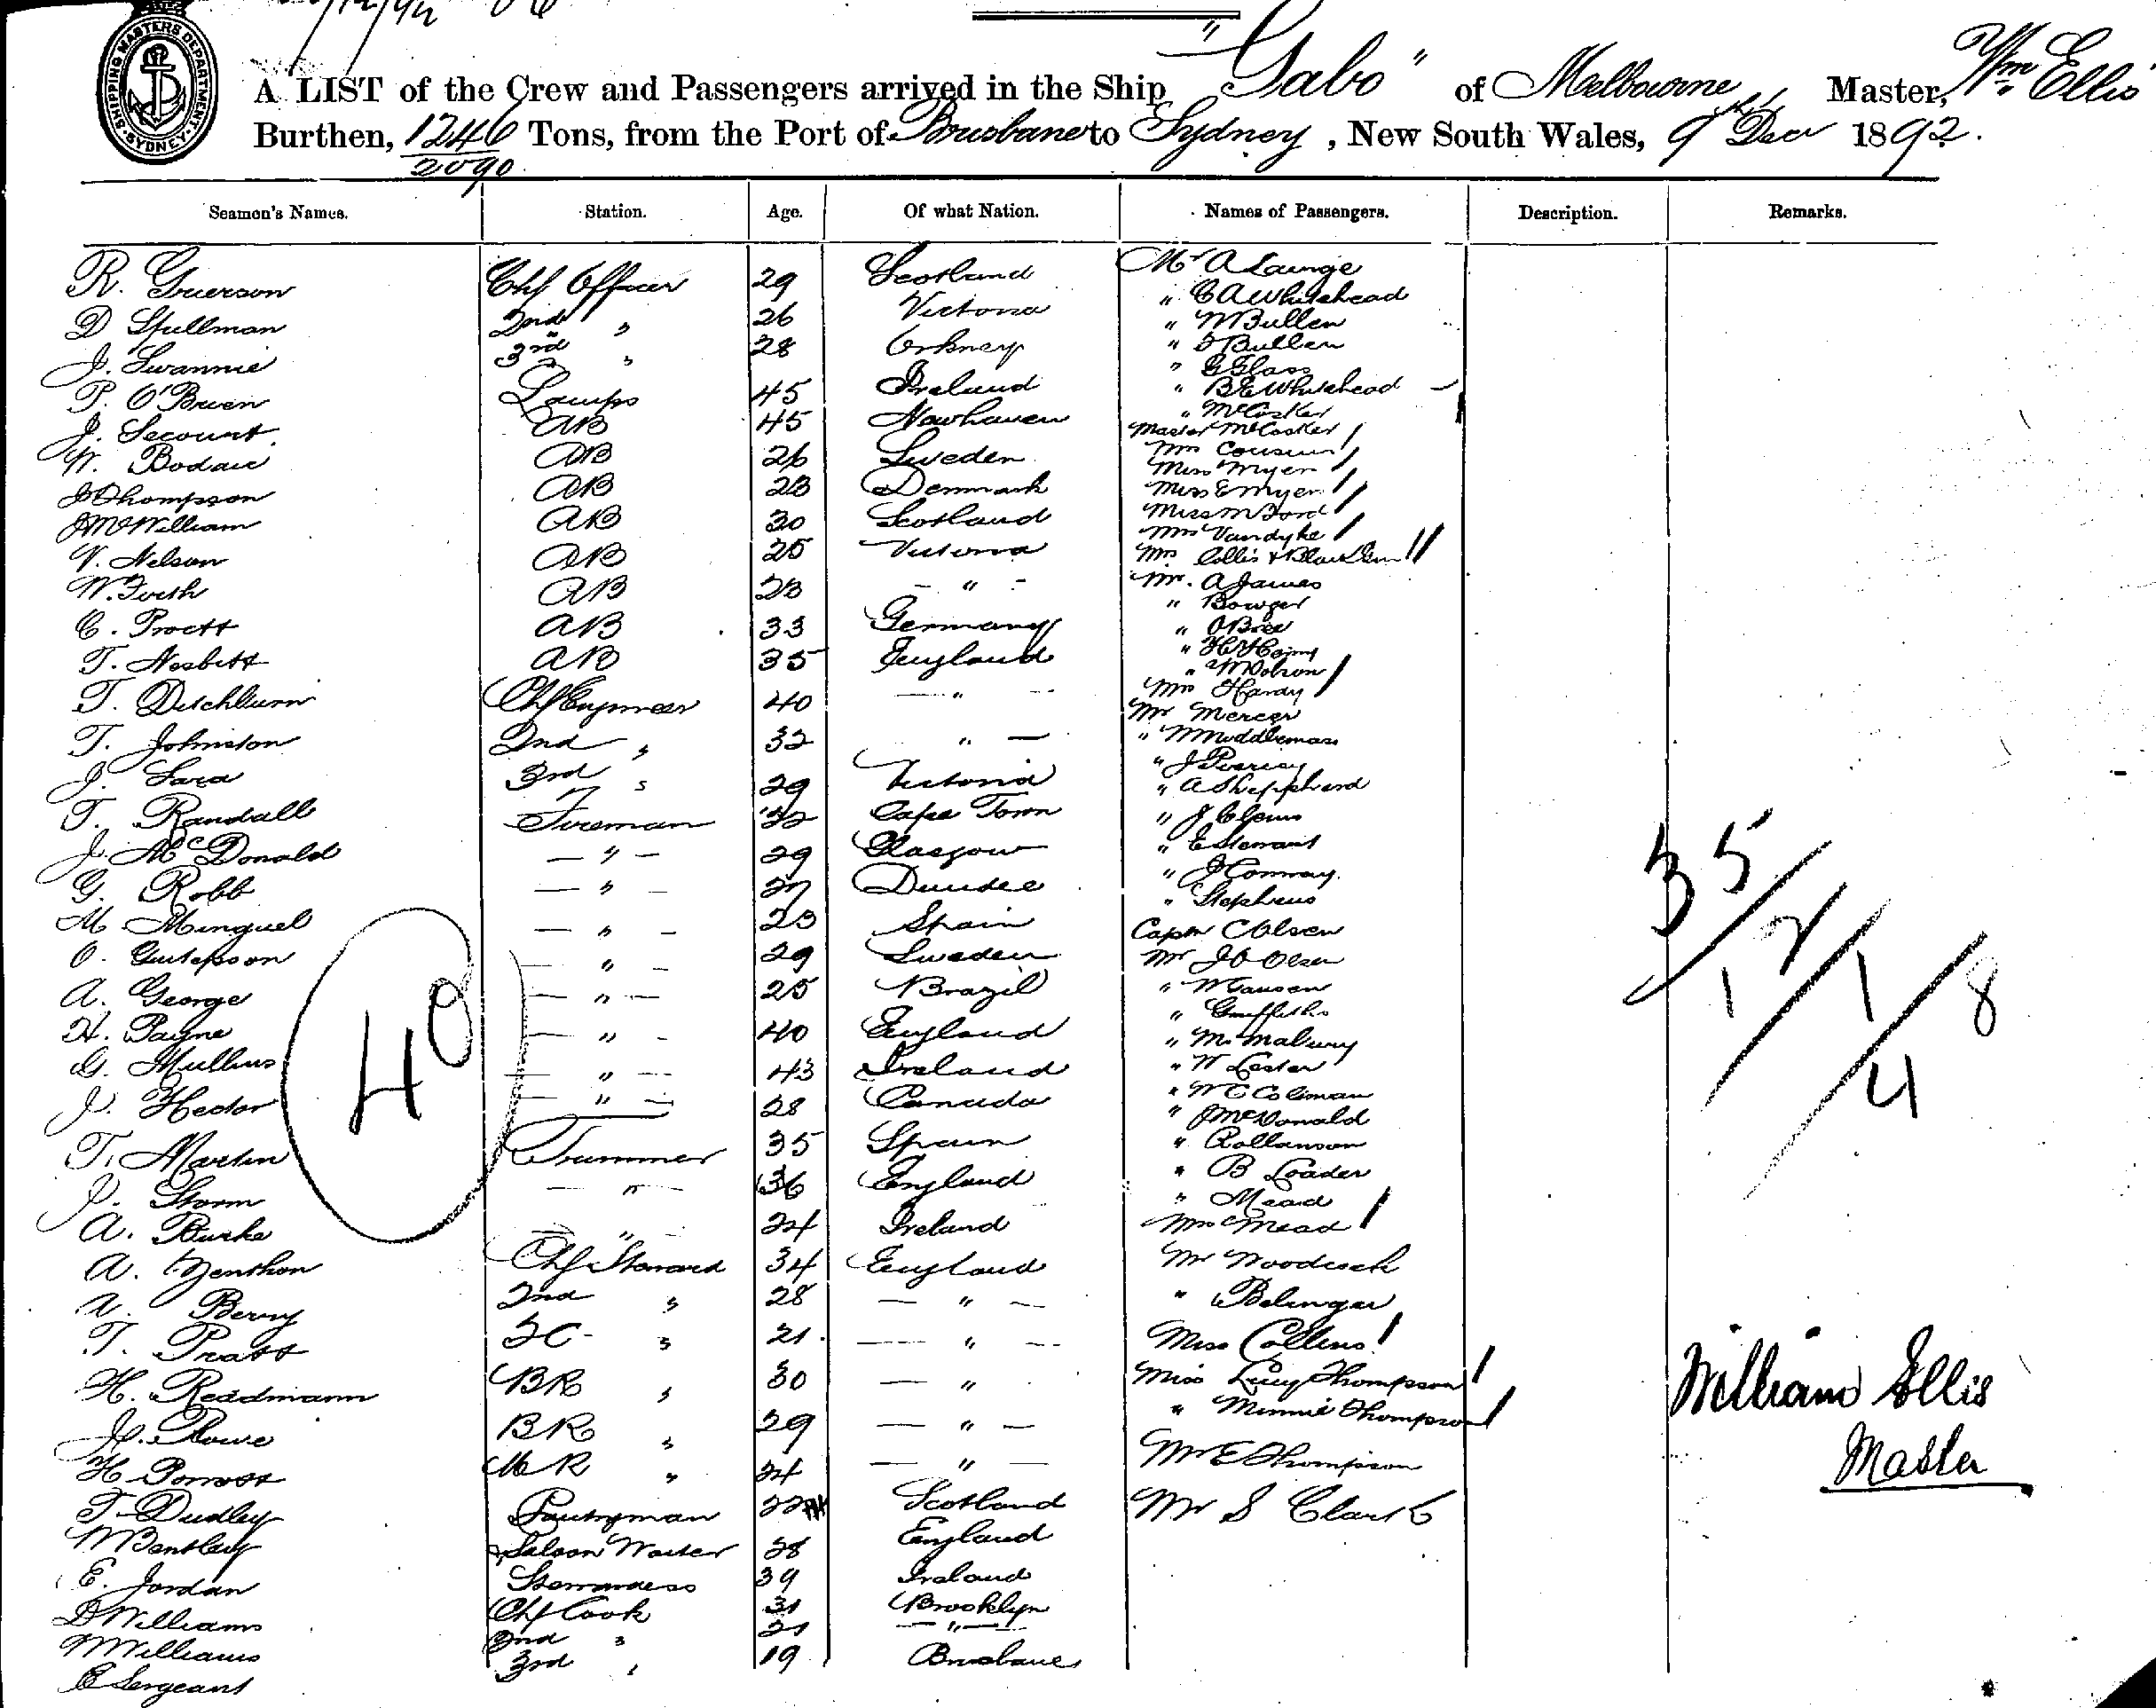 SHIPPING MASTERS DEPARTMENT SYDNEY
A LIST of the Crew and Passengers arrived in the Ship "Gabo" of Melbourne, Master, Wm Ellis
Burthen, 1246 Tons, from the Port of Brisbane to Sydney, New South Wales, 9th Decr 1892.
2090
Seamen's Names. Station. Age. Of what Nation. Names of Passengers. Description. Remarks.
R. Grierson Chf Officer 29 Scotland Mr A Lainge
D Spillman 2nd " 26 Victoria " C A Whitehead
J. Swannie 3rd " 28 Orkney " W Bullen
P. O'Brien Lamps 45 Ireland " Bullen
J. Secourt AB 45 Newhaven " G Glass
W. Bodaie AB 26 Sweden " B E Whitehead
J Thompson AB 23 Denmark " McCosker
J McWilliam AB 30 Scotland Master McCosker
V. Nelson AB 25 Victoria Mrs Cousins
W. Forth AB 23 - " - Miss Myer
C. Proett AB 33 Germany Miss E Myer
T. Nesbitt AB 35 England Miss M Ford
T. Ditchburn Chf Engineer 40 - " - Mrs Vandyke
T. Johnston 2nd " 32 " - Mrs Collis &
J. Sara 3rd " 29 Victoria Mr. A James
T. Randall Fireman 32 Cape Town " Bowger
J. McDonald - " - 29 Glasgow
G. Robb - " - 27 Dundee
M. Minguel - " - 23 Spain
O. Gustafsson - " - 29 Sweden Mrs Hardy
A. George - " - 25 Brazil Mr Mercer
H. Payne - " - 40 England " Middlemass
G. Mullins - " - 43 Ireland
J. Hector - " - 28 Canada " A Shepphard
T. Martin Trimmer 35 Spain " J Clems
J. Storm - " - 36 England " E Stewart
A. Burke - " - 24 Ireland " J Conway.
A. Zenthon Chf Steward 34 England " Stephens
A. Berry 2nd " 28 - " - Captn C Olsen
T. Pratt 3C - " 21 - " - Mr J O Olsen
H. Readmann BR " 30 - " " W Jansen
J. Rowe BR " 29 - " - " Griffiths
H. Porrott MR " 24 - " - " M. Mabury
T. Dudley Pantryman 22 Scotland " W Lester
W Bentley Saloon Waiter 28 England " W E Coliman
E. Jordan Stewardess 39 Ireland " J McDonald
D Williams Chf Cook 31 Brooklyn " Rollanson
W Williams 2nd " 21 - " - " B Loader
C Sergeant 3rd " 19 Brisbane " Mead
Mrs Mead
Mr Woodcock
" Belinger
Miss Collins
Miss Lucy Thompson
" Minnie Thompson
Mr E Thompson
Mr S Clark
40
35
12
1 1
4
8
William Ellis
Master